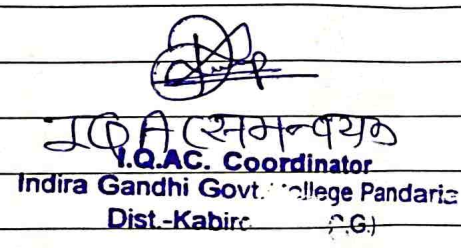 IQAC समन्वयक
I.Q.AC. Coordinator
Indira Gandhi Govt. College Pandaria
Dist.-Kabir C.G.)